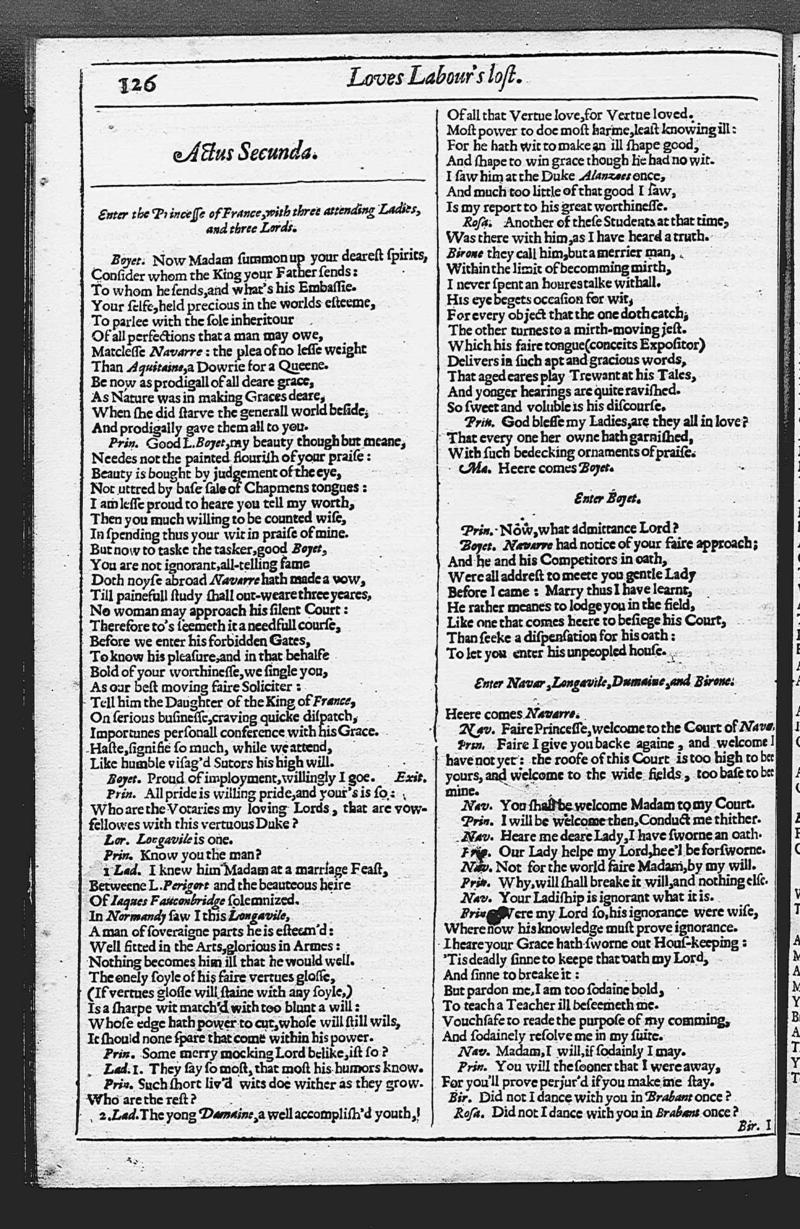 126
Loves Labour's lost.
Actus Secunda.
Enter the Princesse of France, with three attending Ladies,
and three Lords.
Boyet. Now Madam summon up your dearest spirits,
Consider whom the King your Father sends:
To whom he sends, and what's his Embassie.
Your selfe, held precious in the worlds esteeme,
To parlee with the sole inheritour
Of all perfections that a man may owe,
Matclesse Navarre: the plea of no lesse weight
Than Aquitaine, a Dowrie for a Queene.
Be now as prodigall of all deare grace,
As Nature was in making Graces deare,
When she did starve the generall world beside,
And prodigally gave them all to you.
Prin. Good L. Boyet, my beauty though but meane,
Needes not the painted flourish of your praise:
Beauty is bought by judgement of the eye,
Not uttred by base sale of Chapmens tongues:
I am lesse proud to heare you tell my worth,
Then you much willing to be counted wise,
In spending thus your wit in praise of mine.
But now to taske the tasker, good Boyet,
You are not ignorant, all-telling fame
Doth noyse abroad Navarre hath made a vow,
Till painefull study shall out-weare three yeares,
No woman may approach his silent Court:
Therefore to's seemeth it a needfull course,
Before we enter his forbidden Gates,
To know his pleasure, and in that behalfe
Bold of your worthinesse, we single you,
As our best moving faire Soliciter:
Tell him the Daughter of the King of France,
On serious businesse, craving quicke dispatch,
Importunes personall conference with his Grace.
Haste, signifie so much, while we attend,
Like humble visag'd Sutors his high will.
Boyet. Proud of imployment, willingly I goe. Exit.
Prin. All pride is willing pride, and your's is so:
Who are the Votaries my loving Lords, that are vow-
fellowes with this vertuous Duke?
Lor. Longavile is one.
Prin. Know you the man?
1 Lad. I knew him Madam at a marriage Feast,
Betweene L. Perigort and the beauteous heire
Of Iaques Fauconbridge solemnized.
In Normandy saw I this Longavile,
A man of soveraigne parts he is esteem'd:
Well fitted in the Arts, glorious in Armes:
Nothing becomes him ill that he would well.
The onely soyle of his faire vertues glosse,
(If vertues glosse will staine with any soyle,)
Is a sharpe wit match'd with too blunt a will:
Whose edge hath power to cut, whose will still wils,
It should none spare that come within his power.
Prin. Some merry mocking Lord belike, ist so?
Lad. 1. They say so most, that most his humors know.
Prin. Such short liv'd wits doe wither as they grow.
Who are the rest?
2. Lad. The yong Dumaine, a well accomplish'd youth,
Of all that Vertue love, for Vertue loved.
Most power to doe most harme, least knowing ill:
For he hath wit to make an ill shape good,
And shape to win grace though he had no wit.
I saw him at the Duke Alanzoes once,
And much too little of that good I saw,
Is my report to his great worthinesse.
Rosa. Another of these Students at that time,
Was there with him, as I have heard a truth.
Birone they call him, but a merrier man,
Within the limit of becomming mirth,
I never spent an houres talke withall.
His eye begets occasion for wit,
For every object that the one doth catch,
The other turnes to a mirth-moving jest.
Which his faire tongue (conceits Expositor)
Delivers in such apt and gracious words,
That aged eares play Trewant at his Tales,
And yonger hearings are quite ravished.
So sweet and voluble is his discourse.
Prin. God blesse my Ladies, are they all in love?
That every one her owne hath garnished,
With such bedecking ornaments of praise.
Ma. Heere comes Boyet.
Enter Boyet.
Prin. Now, what admittance Lord?
Boyet. Navarre had notice of your faire approach;
And he and his Competitors in oath,
Were all addrest to meete you gentle Lady
Before I came: Marry thus I have learnt,
He rather meanes to lodge you in the field,
Like one that comes heere to besiege his Court,
Than seeke a dispensation for his oath:
To let you enter his unpeopled house.
Enter Navar, Longavile, Dumaine, and Birone.
Heere comes Navarre.
Nav. Faire Princesse, welcome to the Court of Nava.
Prin. Faire I give you backe againe, and welcome I
have not yet: the roofe of this Court is too high to bee
yours, and welcome to the wide fields, too base to bee
mine.
Nav. You shall be welcome Madam to my Court.
Prin. I will be welcome then, Conduct me thither.
Nav. Heare me deare Lady, I have sworne an oath.
Prin. Our Lady helpe my Lord, hee'l be forsworne.
Nav. Not for the world faire Madam, by my will.
Prin. Why, will shall breake it will, and nothing else.
Nav. Your Ladiship is ignorant what it is.
Prin. Were my Lord so, his ignorance were wise,
Where now his knowledge must prove ignorance.
I heare your Grace hath sworne out Hous-keeping:
'Tis deadly sinne to keepe that oath my Lord,
And sinne to breake it:
But pardon me, I am too sodaine bold,
To teach a Teacher ill beseemeth me.
Vouchsafe to reade the purpose of my comming,
And sodainely resolve me in my suite.
Nav. Madam, I will, if sodainly I may.
Prin. You will the sooner that I were away,
For you'll prove perjur'd if you make me stay.
Bir. Did not I dance with you in Brabant once?
Rosa. Did not I dance with you in Brabant once?
Bir. I